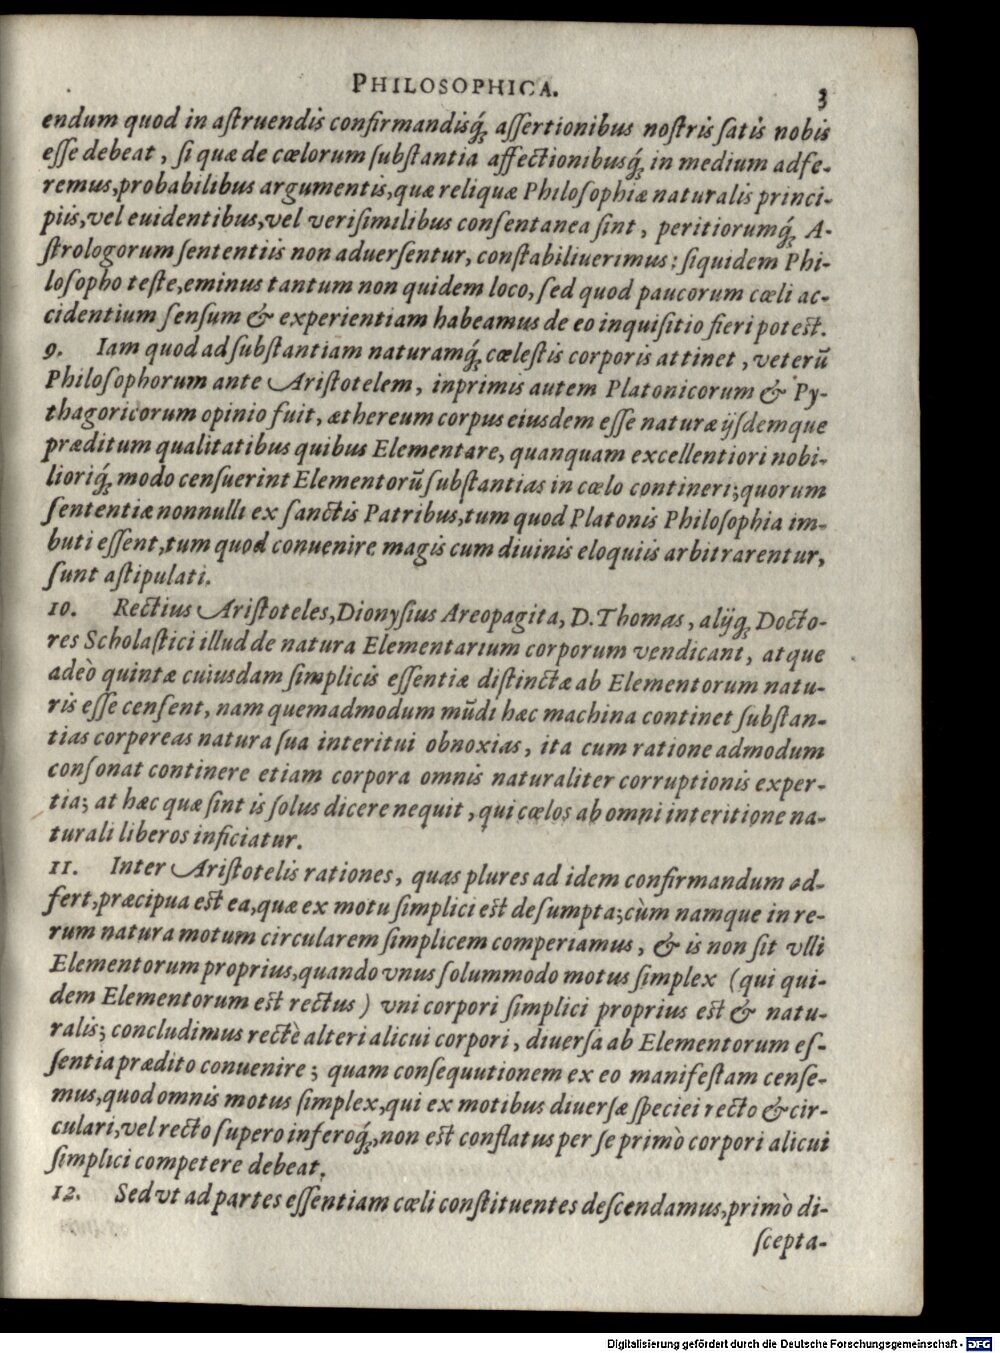 PHILOSOPHICA. 3
endum quod in aſtruendis confirmandisq́; aſſertionibus noſtris ſatis nobis
eſſe debeat, ſi quæ de cœlorum ſubſtantia affectionibusq́; in medium adfe-
remus, probabilibus argumentis, quæ reliquæ Philoſophiæ naturalis princi-
piis, vel euidentibus, vel veriſimilibus conſentanea ſint, peritiorumq́; A-
ſtrologorum ſententiis non aduerſentur, conſtabiliuerimus: ſiquidem Phi-
loſopho teſte, eminus tantum non quidem loco, ſed quod paucorum cœli ac-
cidentium ſenſum & experientiam habeamus de eo inquiſitio fieri potest.
9. Iam quod ad ſubſtantiam naturamq́; cœleſtis corporis attinet, veterũ
Philoſophorum ante Ariſtotelem, inprimis autem Platonicorum & Py-
thagoricorum opinio fuit, æthereum corpus eiusdem eſſe naturæ ijſdemque
præditum qualitatibus quibus Elementare, quanquam excellentiori nobi-
lioriq́; modo cenſuerint Elementorũ ſubſtantias in cœlo contineri; quorum
ſententiæ nonnulli ex ſanctis Patribus, tum quod Platonis Philoſophia im-
buti eſſent, tum quod conuenire magis cum diuinis eloquiis arbitrarentur,
ſunt aſtipulati.
10. Rectius Ariſtoteles, Dionyſius Areopagita, D. Thomas, alijq; Docto-
res Scholaſtici illud de natura Elementarium corporum vendicant, atque
adeò quintæ cuiusdam ſimplicis eſſentiæ diſtinctæ ab Elementorum natu-
ris eſſe cenſent, nam quemadmodum mũdi hæc machina continet ſubſtan-
tias corporeas natura ſua interitui obnoxias, ita cum ratione admodum
conſonat continere etiam corpora omnis naturaliter corruptionis exper-
tia; at hæc quæ ſint is ſolus dicere nequit, qui cœlos ab omni interitione na-
turali liberos inficiatur.
11. Inter Ariſtotelis rationes, quas plures ad idem confirmandum ad-
fert, præcipua est ea, quæ ex motu ſimplici est deſumpta; cùm namque in re-
rum natura motum circularem ſimplicem comperiamus, & is non ſit vlli
Elementorum proprius, quando vnus ſolummodo motus ſimplex (qui qui-
dem Elementorum est rectus) vni corpori ſimplici proprius est & natu-
ralis; concludimus rectè alteri alicui corpori, diuerſa ab Elementorum eſ-
ſentia prædito conuenire; quam conſequutionem ex eo manifeſtam cenſe-
mus, quod omnis motus ſimplex, qui ex motibus diuerſæ ſpeciei recto & cir-
culari, vel recto ſupero inferoq́;, non est conflatus per ſe primò corpori alicui
ſimplici competere debeat.
12. Sed vt ad partes eſſentiam cœli conſtituentes deſcendamus, primò di-
ſcepta-
Digitalisierung gefördert durch die Deutsche Forschungsgemeinschaft - DFG